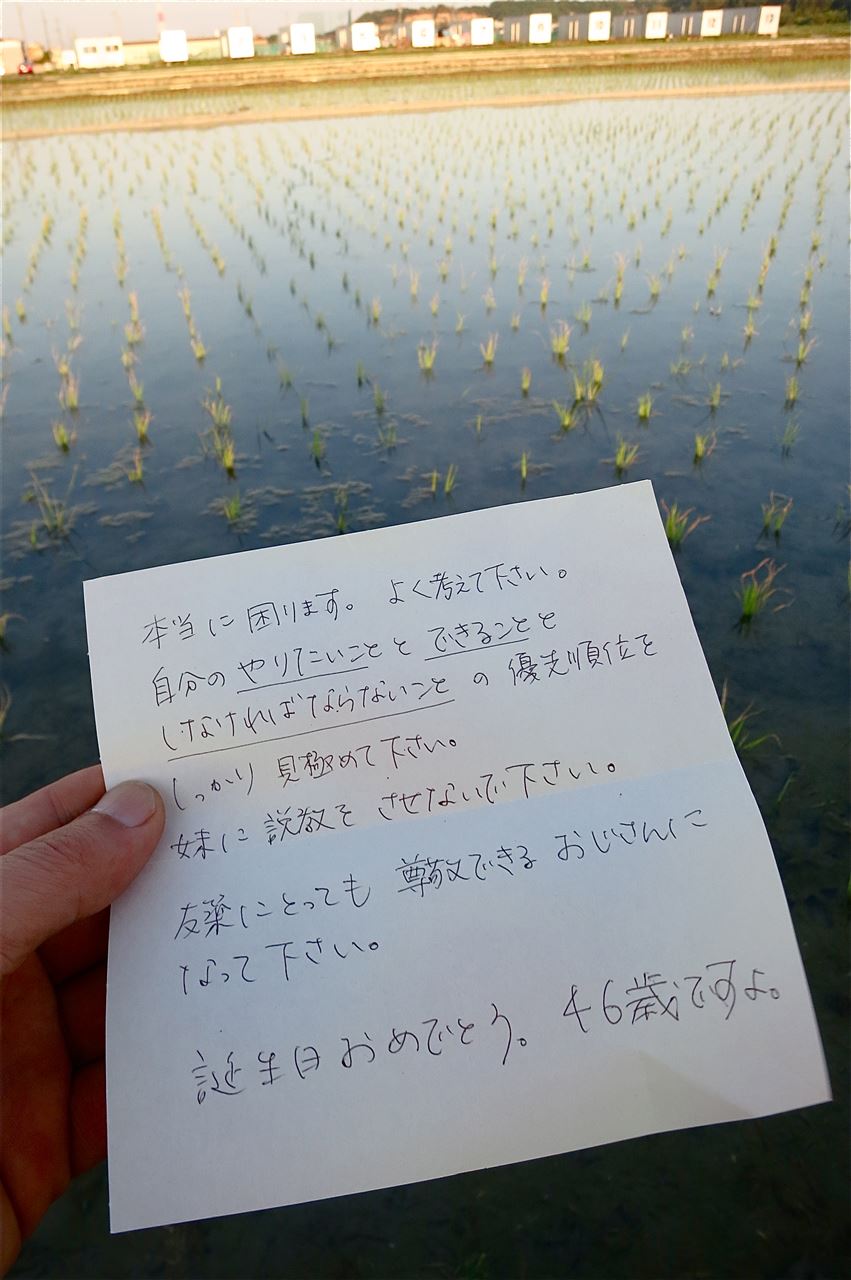 本当に困ります。よく考えて下さい。
自分のやりたいこととできることと
しなければならないことの優先順位を
しっかり見極めて下さい。
妹に説教をさせないで下さい。
にとっても尊敬できるおじさんに
なって下さい。
誕生日おめでとう。46歳ですよ。